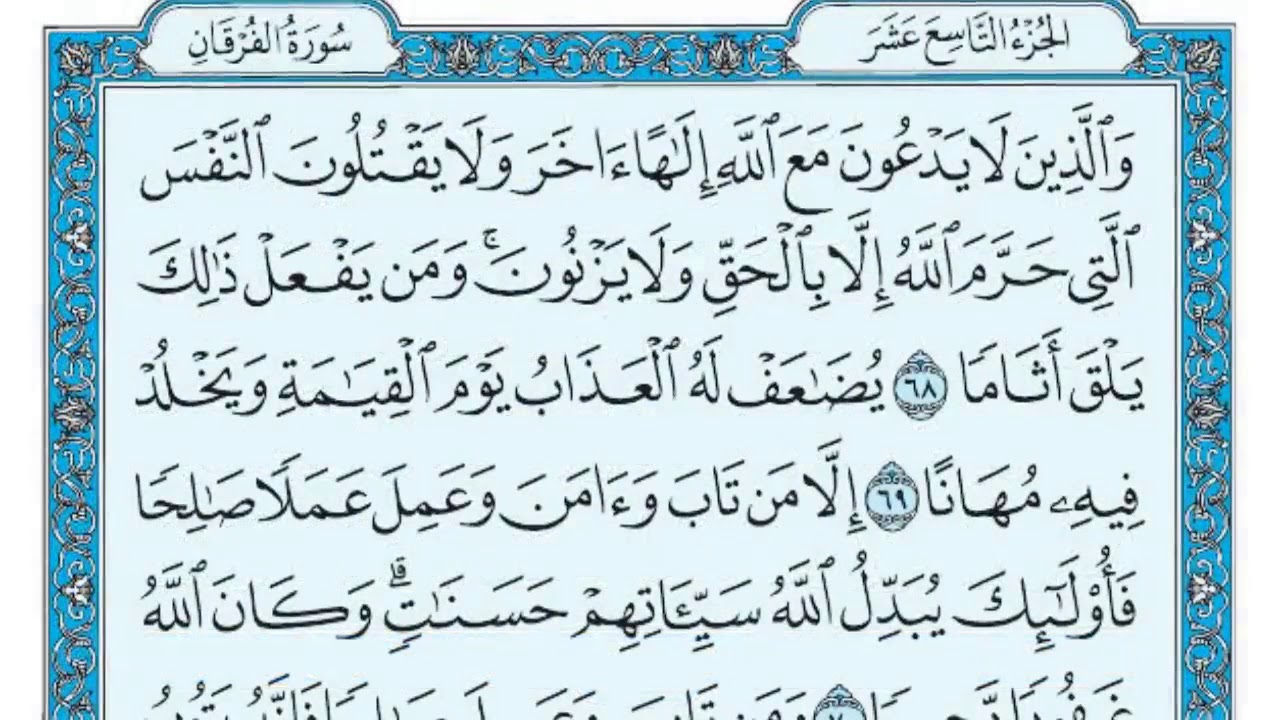 الجُزْءُ التَّاسِعَ عَشَرَ
سُورَةُ الفُرْقَانِ
وَٱلَّذِينَ لَا يَدْعُونَ مَعَ ٱللَّهِ إِلَٰهًا ءَاخَرَ وَلَا يَقْتُلُونَ ٱلنَّفْسَ
ٱلَّتِى حَرَّمَ ٱللَّهُ إِلَّا بِٱلْحَقِّ وَلَا يَزْنُونَ ۚ وَمَن يَفْعَلْ ذَٰلِكَ
يَلْقَ أَثَامًا ٦٨ يُضَٰعَفْ لَهُ ٱلْعَذَابُ يَوْمَ ٱلْقِيَٰمَةِ وَيَخْلُدْ
فِيهِۦ مُهَانًا ٦٩ إِلَّا مَن تَابَ وَءَامَنَ وَعَمِلَ عَمَلًا صَٰلِحًا
فَأُو۟لَٰٓئِكَ يُبَدِّلُ ٱللَّهُ سَيِّـَٔاتِهِمْ حَسَنَٰتٍ ۗ وَكَانَ ٱللَّهُ